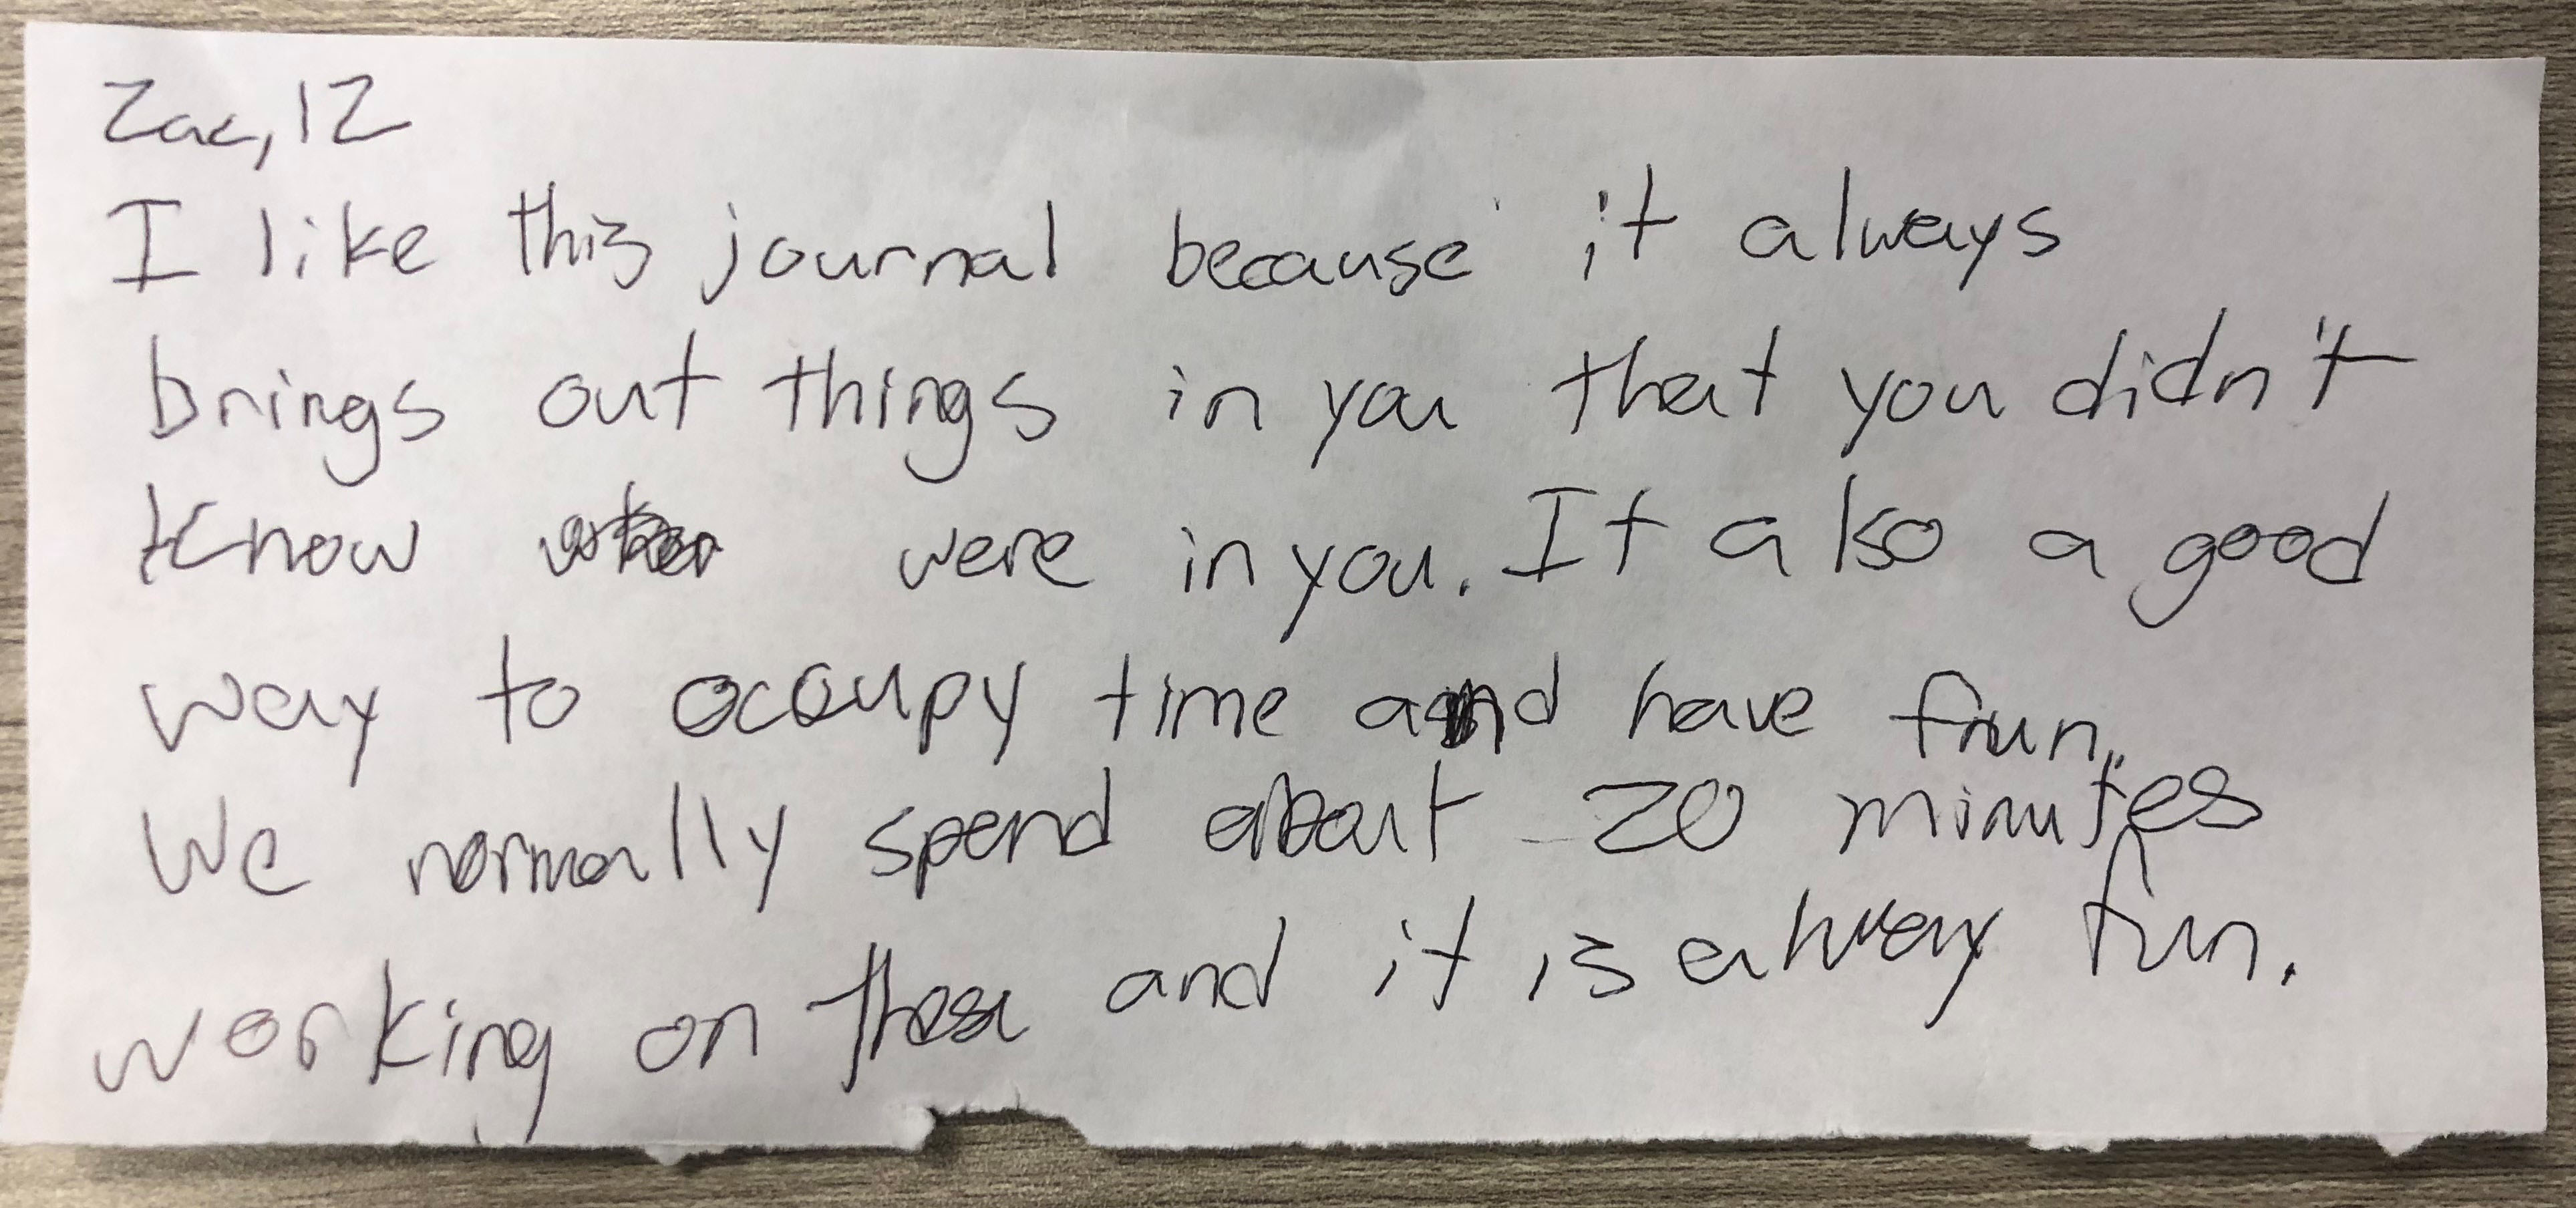 Zac, 12
I like this journal because it always
brings out things in you that you didn't
know were in you. It also a good
way to occupy time and have frun.
We normally spend about 20 minutes
working on these and it is alway fun.